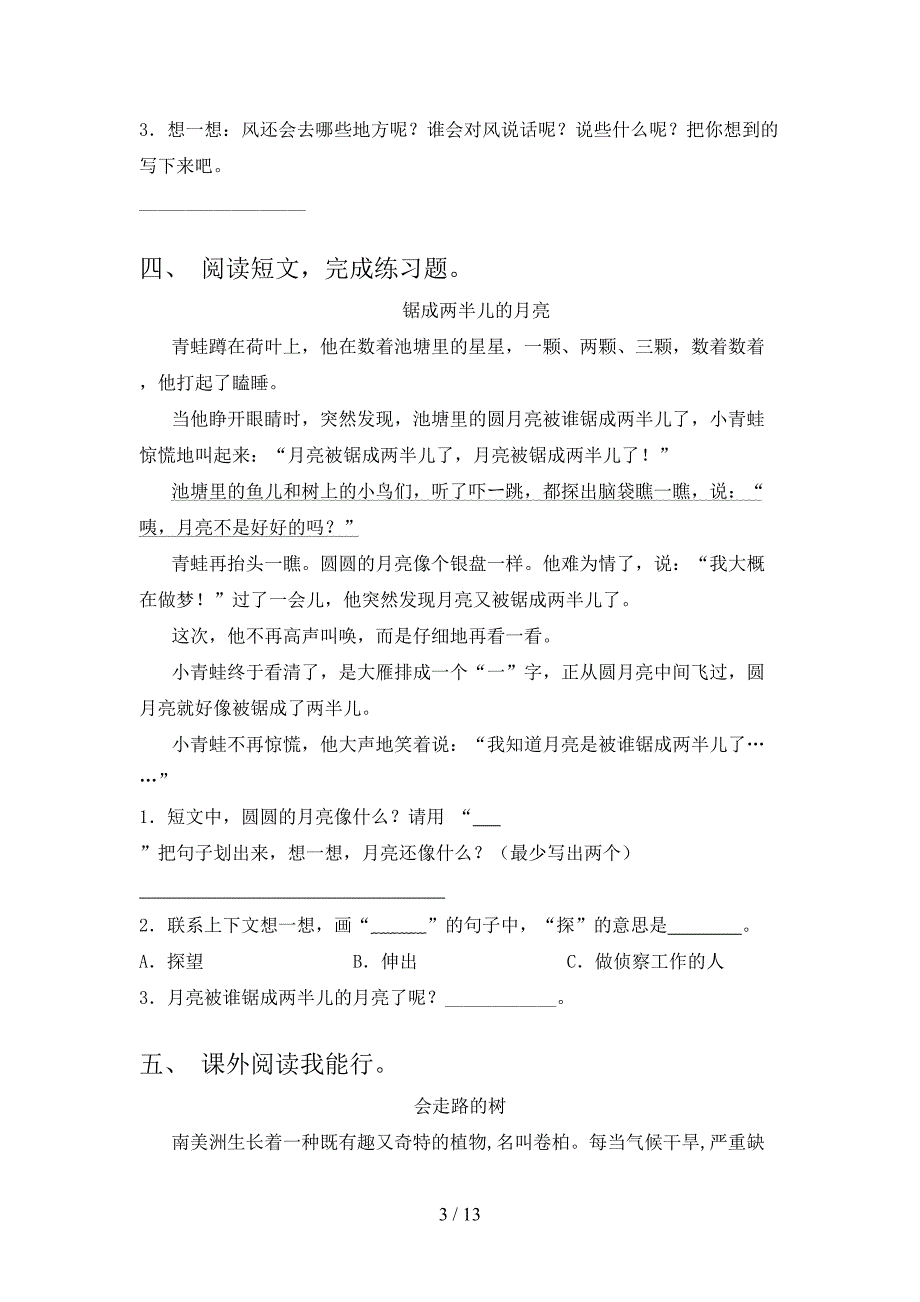 3．想一想：风还会去哪些地方呢？谁会对风说话呢？说些什么呢？把你想到的
写下来吧。
__________________
四、 阅读短文，完成练习题。
锯成两半儿的月亮
青蛙蹲在荷叶上，他在数着池塘里的星星，一颗、两颗、三颗，数着数着
，他打起了瞌睡。
当他睁开眼睛时，突然发现，池塘里的圆月亮被谁锯成两半儿了，小青蛙
惊慌地叫起来：“月亮被锯成两半儿了，月亮被锯成两半儿了！”
池塘里的鱼儿和树上的小鸟们，听了吓一跳，都探出脑袋瞧一瞧，说：“
咦，月亮不是好好的吗？”
青蛙再抬头一瞧。圆圆的月亮像个银盘一样。他难为情了，说：“我大概
在做梦！”过了一会儿，他突然发现月亮又被锯成两半儿了。
这次，他不再高声叫唤，而是仔细地再看一看。
小青蛙终于看清了，是大雁排成一个“一”字，正从圆月亮中间飞过，圆
月亮就好像被锯成了两半儿。
小青蛙不再惊慌，他大声地笑着说：“我知道月亮是被谁锯成两半儿了…
…”
1．短文中，圆圆的月亮像什么？请用 “___
”把句子划出来，想一想，月亮还像什么？（最少写出两个）
_________________________________
2．联系上下文想一想，画“______”的句子中，“探”的意思是________。
A．探望 B．伸出 C．做侦察工作的人
3．月亮被谁锯成两半儿的月亮了呢？____________。
五、 课外阅读我能行。
会走路的树
南美洲生长着一种既有趣又奇特的植物,名叫卷柏。每当气候干旱,严重缺
3 / 13